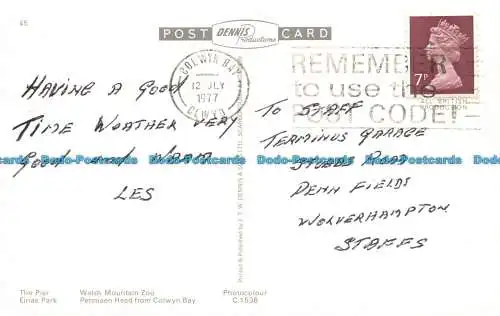 45
POST DENNIS Productions CARD
COLWYN BAY
12 JLY
1977
CLWYD
REMEMBER
to use the
POST CODE!
7P
HAVING A GOOD
TIME WEATHER VERY
GOOD and WARM
LES
TO STAFF
TERMINUS GARAGE
ROAD
PENN FIELDS
WOLVERHAMPTON
STAFFS
Dodo-Postcards Dodo-Postcards Dodo-Postcards Dodo-Postcards Dodo-Postcards
The Pier Welsh Mountain Zoo Photocolour
Eirias Park Penmaen Head from Colwyn Bay C.1538